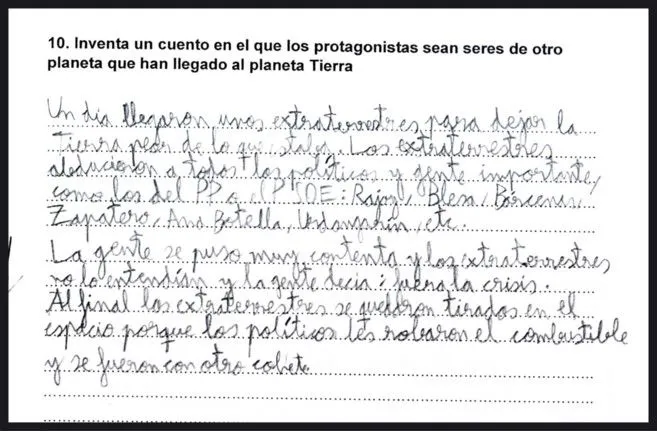 10. Inventa un cuento en el que los protagonistas sean seres de otro
planeta que han llegado al planeta Tierra
Un día llegaron unos extraterrestres para dejar la
Tierra peor de lo que estaba. Los extraterrestres
abducieron a todos los políticos y gente importante,
como los del PP o PSOE: Rajoy, Blesa, Bárcenas,
Zapatero, Ana Botella, Urdangarin, etc.
La gente se puso muy contenta y los extraterrestres
no lo entendían y la gente decía: fuera la crisis.
Al final los extraterrestres se quedaron tirados en el
espacio porque los políticos les robaron el combustible
y se fueron con otro cohete.